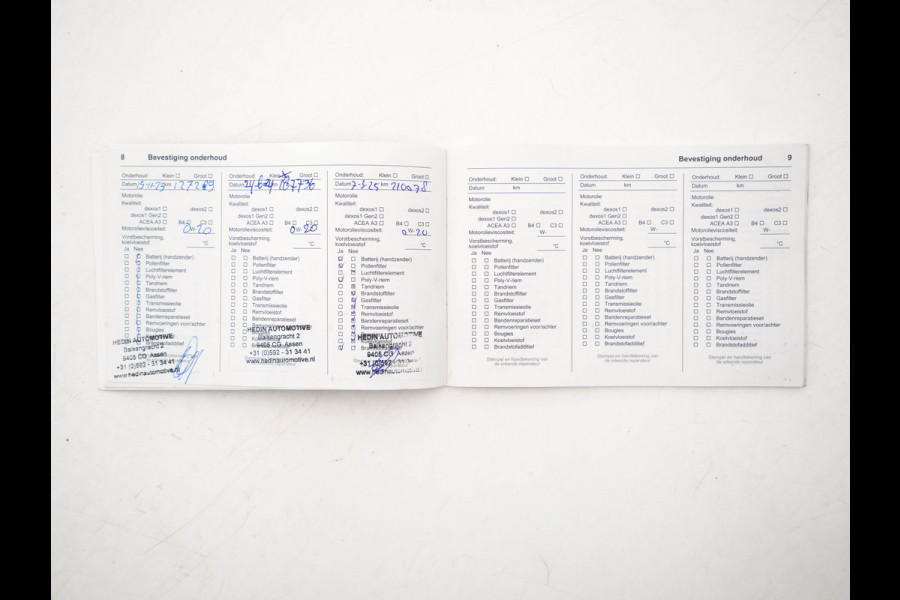 8 Bevestiging onderhoud
Onderhoud: Klein Groot
Datum 13-11-23 km 127219
Motorolie
Kwaliteit:
dexos1 dexos2
dexos1 Gen2
ACEA A3 B4 C3
Motorolieviscositeit: 0W-20
Vorstbescherming,
koelvloeistof °C
Ja Nee
Batterij (handzender)
Pollenfilter
Luchtfilterelement
Poly-V-riem
Tandriem
Brandstoffilter
Gasfilter
Transmissieolie
Remvloeistof
Bandenreparatieset
Remvoeringen voor/achter
Bougies
Koelvloeistof
Brandstofadditief
HEDIN AUTOMOTIVE
Balkengracht 2
9405 CG Assen
+31 (0)592 - 31 34 41
www.hedinautomotive.nl
Onderhoud: Klein Groot
Datum 24-6-24 km 167736
Motorolie
Kwaliteit:
dexos1 dexos2
dexos1 Gen2
ACEA A3 B4 C3
Motorolieviscositeit: 0W-20
Vorstbescherming,
koelvloeistof °C
Ja Nee
Batterij (handzender)
Pollenfilter
Luchtfilterelement
Poly-V-riem
Tandriem
Brandstoffilter
Gasfilter
Transmissieolie
Remvloeistof
Bandenreparatieset
Remvoeringen voor/achter
HEDIN AUTOMOTIVE
Balkengracht 2
9405 CG Assen
+31 (0)592 - 31 34 41
www.hedinautomotive.nl
Onderhoud: Klein Groot
Datum 7-3-25 km 210078
Motorolie
Kwaliteit:
dexos1 dexos2
dexos1 Gen2
ACEA A3 B4 C3
Motorolieviscositeit: 0W-20
Vorstbescherming,
koelvloeistof °C
Ja Nee
Batterij (handzender)
Pollenfilter
Luchtfilterelement
Poly-V-riem
Tandriem
Brandstoffilter
Gasfilter
Transmissieolie
Remvloeistof
Bandenreparatieset
Remvoeringen voor/achter
HEDIN AUTOMOTIVE
Balkengracht 2
9405 CG Assen
+31 (0)592 - 31 34 41
www.hedinautomotive.nl
Bevestiging onderhoud 9
Onderhoud: Klein Groot
Datum km
Motorolie
Kwaliteit:
dexos1 dexos2
dexos1 Gen2
ACEA A3 B4 C3
Motorolieviscositeit: W-
Vorstbescherming,
koelvloeistof °C
Ja Nee
Batterij (handzender)
Pollenfilter
Luchtfilterelement
Poly-V-riem
Tandriem
Brandstoffilter
Gasfilter
Transmissieolie
Remvloeistof
Bandenreparatieset
Remvoeringen voor/achter
Bougies
Koelvloeistof
Brandstofadditief
Stempel en handtekening van
de erkende reparateur
Onderhoud: Klein Groot
Datum km
Motorolie
Kwaliteit:
dexos1 dexos2
dexos1 Gen2
ACEA A3 B4 C3
Motorolieviscositeit: W-
Vorstbescherming,
koelvloeistof °C
Ja Nee
Batterij (handzender)
Pollenfilter
Luchtfilterelement
Poly-V-riem
Tandriem
Brandstoffilter
Gasfilter
Transmissieolie
Remvloeistof
Bandenreparatieset
Remvoeringen voor/achter
Bougies
Koelvloeistof
Brandstofadditief
Stempel en handtekening van
de erkende reparateur
Onderhoud: Klein Groot
Datum km
Motorolie
Kwaliteit:
dexos1 dexos2
dexos1 Gen2
ACEA A3 B4 C3
Motorolieviscositeit: W-
Vorstbescherming,
koelvloeistof °C
Ja Nee
Batterij (handzender)
Pollenfilter
Luchtfilterelement
Poly-V-riem
Tandriem
Brandstoffilter
Gasfilter
Transmissieolie
Remvloeistof
Bandenreparatieset
Remvoeringen voor/achter
Bougies
Koelvloeistof
Brandstofadditief
Stempel en handtekening van
de erkende reparateur